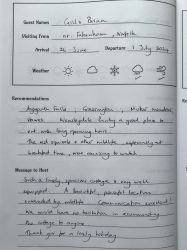 Guest Names Gill & Brian
Visiting from nr. Fakenham, Norfolk
Arrival 26 June Departure 1 July
Weather
Recommendations
Falls,
Powis a good place to
eat with long opening hours
The red squirrels & other wildlife especially at
breakfast time, were amazing to watch
Message to Host
Such a lovely, spacious cottage & very well
equipped. A beautiful, peaceful location
surrounded by wildlife. Communication excellent!
We would have no hesitation in recommending
the cottage to anyone
Thank you for a lovely holiday